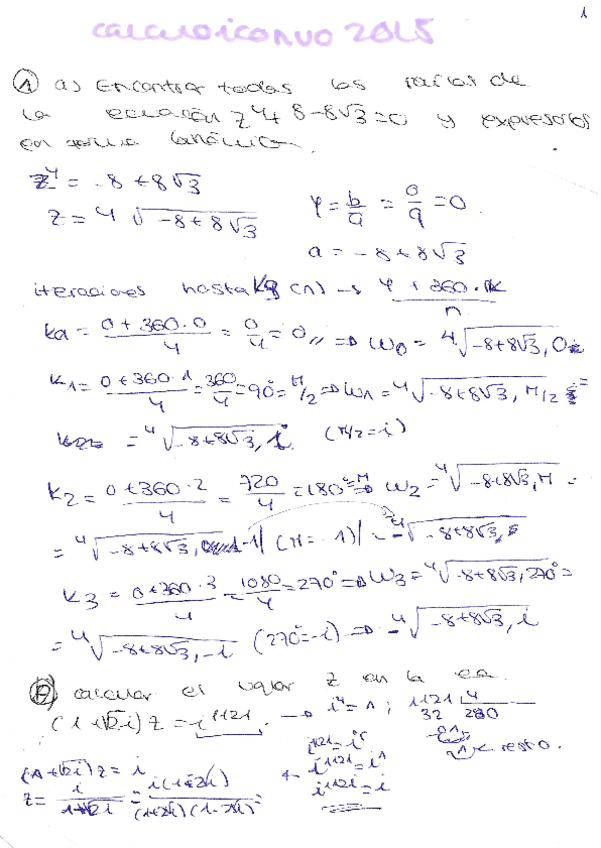 calculo iconuo 2015
1
① a) Encontrar todas las raices de
la ecuación z⁴ + 8 - 8√3 = 0 y expresarlos
en forma
z⁴ = -8 + 8√3
z = ⁴√-8 + 8√3
φ = b/a = 0/a = 0
a = -8 + 8√3
iteraciones hasta (n) → φ + 360·K / n
= 0 + 360·0 / 4 = 0/4 = 0 // ⇒ W₀ = ⁴√-8+8√3, 0
K₁ = 0 + 360·1 / 4 = 360/4 = 90° = π/2 ⇒ W₁ = ⁴√-8+8√3, π/2 =
= ⁴√-8+8√3, i (π/2 = i)
K₂ = 0 + 360·2 / 4 = 720/4 = 180° = π ⇒ W₂ = ⁴√-8+8√3, π =
= ⁴√-8+8√3, -1 (π = -1) = -⁴√-8+8√3
K₃ = 0 + 360·3 / 4 = 1080/4 = 270° ⇒ W₃ = ⁴√-8+8√3, 270° =
= ⁴√-8+8√3, -i (270° = -i) ⇒ -⁴√-8+8√3, i
b) calcular el valor z en la ec.
(1+√2i) z = i¹¹²¹. → i⁴ = 1 ; 1121 | 4
32 280
01
1 ← resto.
i¹¹²¹ = i¹
i¹¹²¹ = i
(1+√2i) z = i
z = i / 1+√2i =